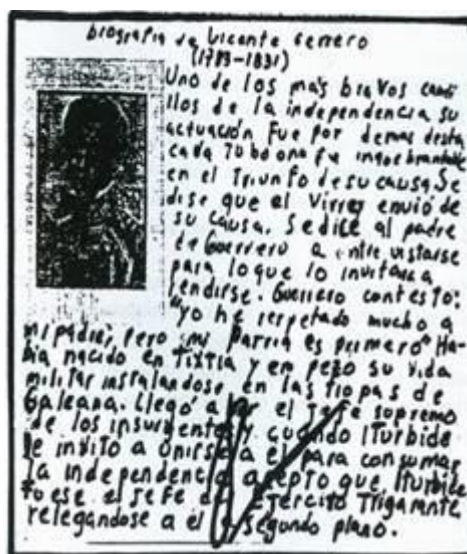 biografia de Vicente Gerrero
(1783-1831)
Uno de los más bravos caudi
llos de la independencia su
actuación Fue por demas desta
cada Tubo una fe inquebrantable
en el Triunfo de su causa Se
dise que el Virrey envió de
su causa. Se dice al padre
de Guerrero a entrevistarse
para lo que lo invitara a
rendirse. Guerrero contesto:
"yo he respetado mucho a
mi padre, pero mi Patria es primero" Ha-
bia nacido en Tixtla y empezo su vida
militar instalandose en las tropas de
Galeana. Llegó a ser el Jefe supremo
de los insurgentes y cuando Iturbide
le invito a unirse a el para consumar
la independencia acepto que Iturbide
fuese el Jefe del Ejercito Trigarante
relegandose a él a segundo plano.